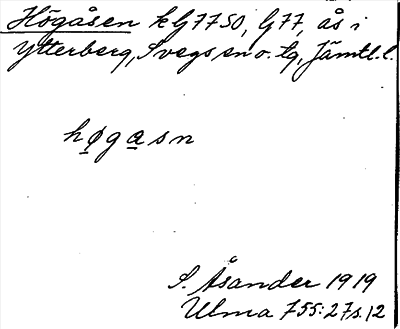 Högåsen kG7750, G77, ås i
Ytterberg, Svegs sn o. tg, Jämtl. l.
høgasn
S. Åsander 1919
Ulma 755:27 s. 12